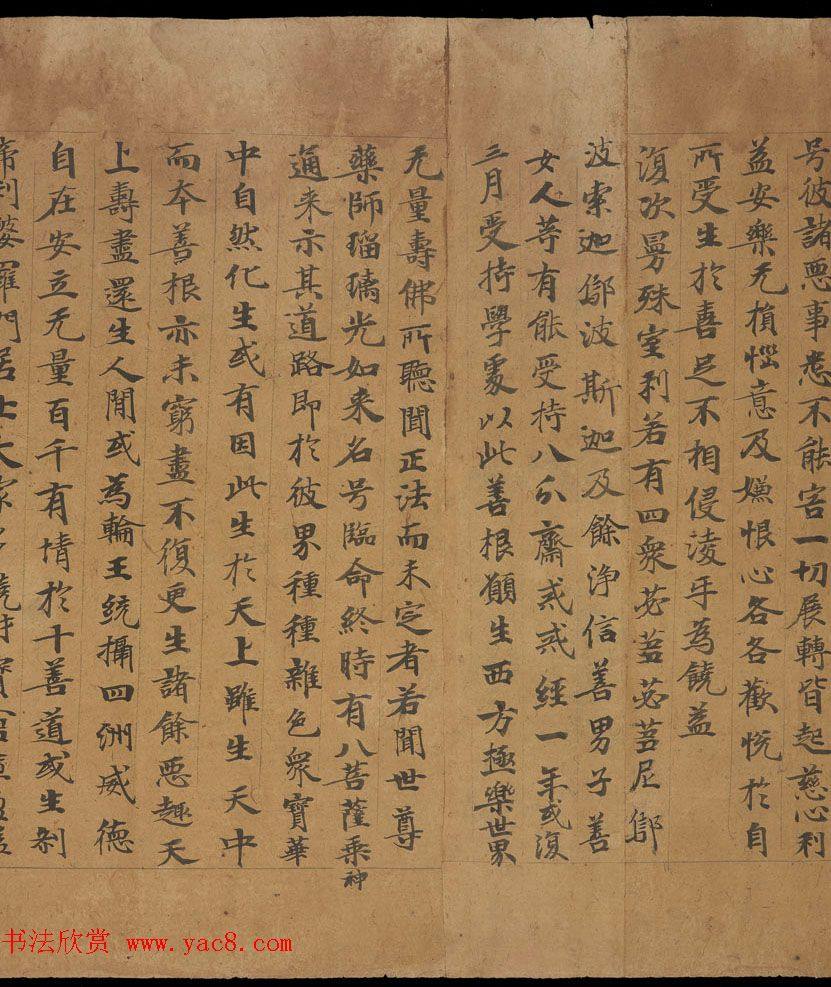 号彼諸惡事悉不能害一切展轉皆起慈心利
益安樂无損惱意及嫌恨心各各歡悅於自
所受生於喜足不相侵淩乎為饒益
復次曼殊室利若有四眾苾芻苾芻尼鄔
波索迦鄔波斯迦及餘浄信善男子善
女人等有能受持八分齋或或經一年或復
三月受持學處以此善根願生西方極樂世界
无量壽佛所聽聞正法而未定者若聞世尊
藥師瑠璃光如来名号臨命終時有八菩薩乘神
通来示其道路即於彼界種種雜色眾寶華
中自然化生或有因此生於天上雖生天中
而夲善根亦未窮盡不復更生諸餘惡趣天
上壽盡還生人間或為輪王統攝四洲威德
自在安立无量百千有情於十善道或生剎
帝利婆羅門居士大家多饒財寶倉庫盈溢
书法欣赏 www.yac8.com